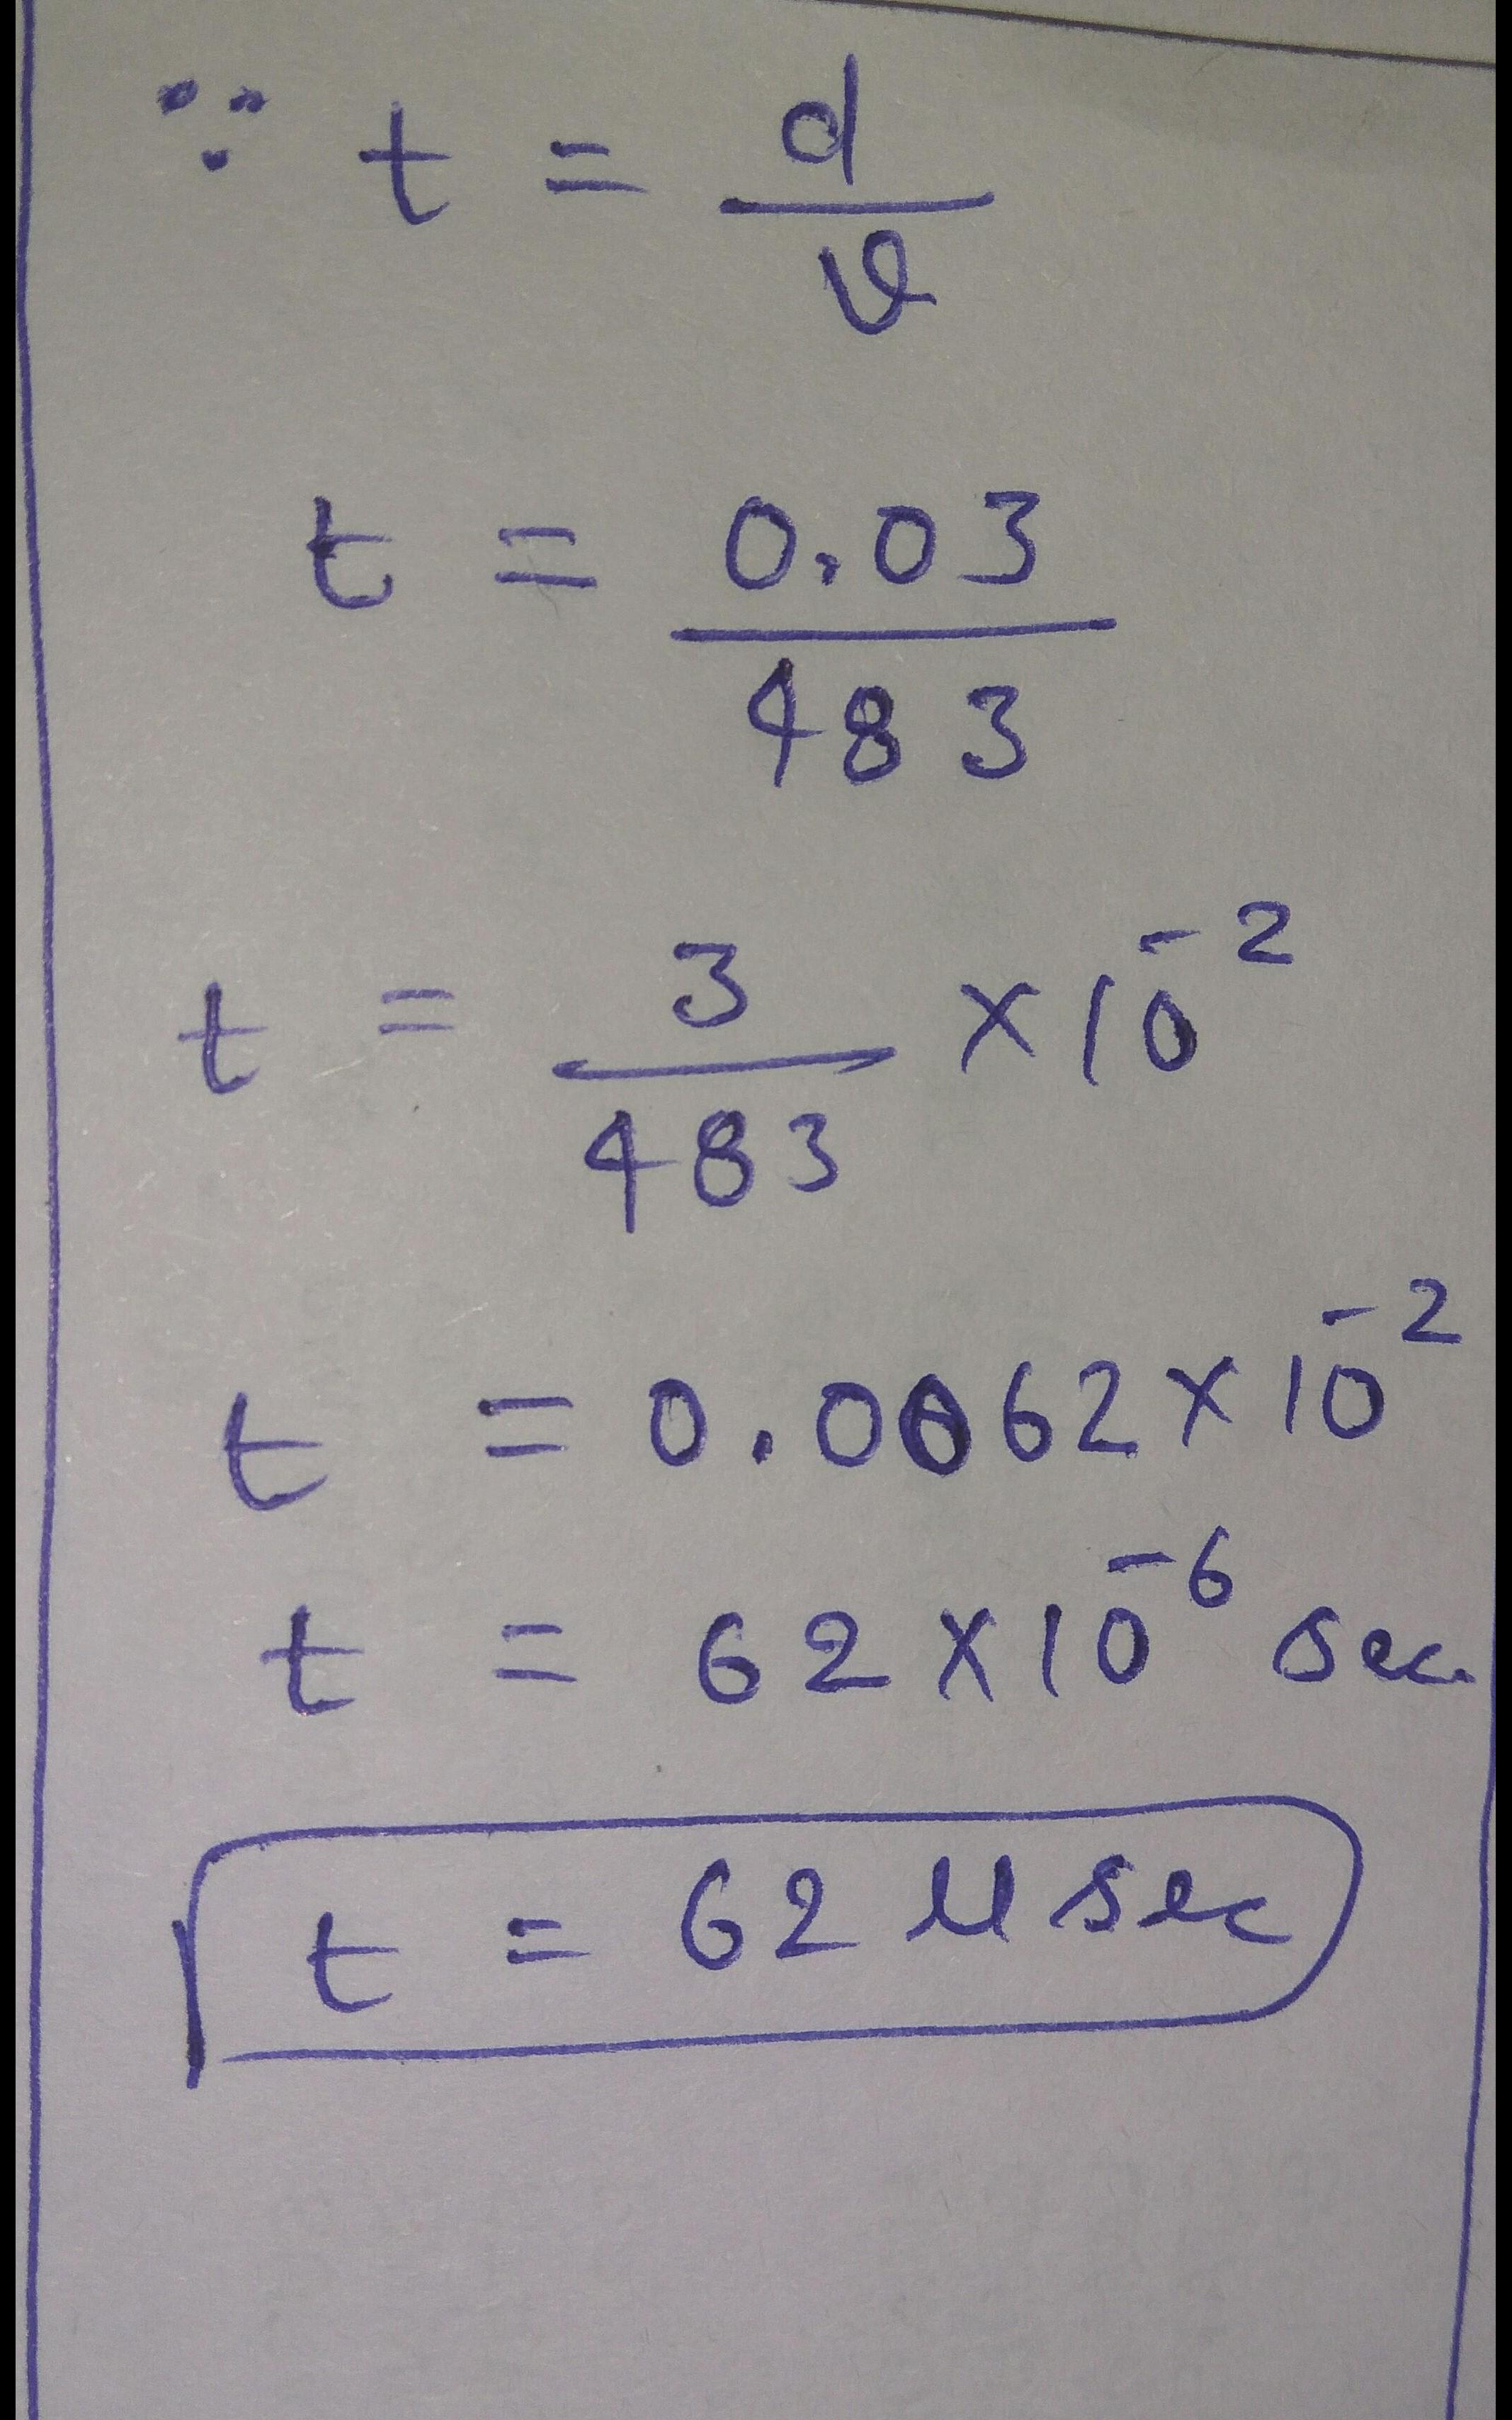 ∵ t = d/v
t = 0.03/483
t = 3/483 × 10⁻²
t = 0.0062 × 10⁻²
t = 62 × 10⁻⁶ sec.
t = 62 μ sec